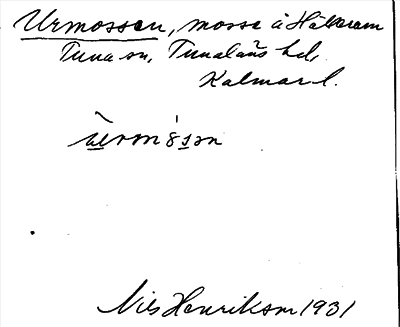 Urmossen, mosse å Hålkeram
Tuna sn, Tunaläns hd,
Kalmar l.
Nils Henrikson 1931